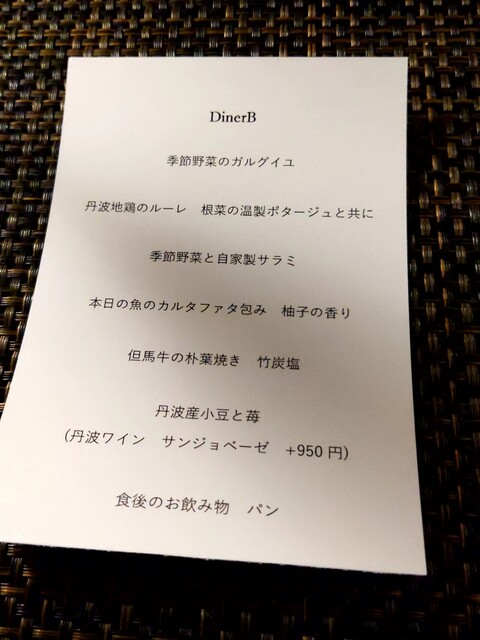 DinerB
季節野菜のガルグイユ
丹波地鶏のルーレ　根菜の温製ポタージュと共に
季節野菜と自家製サラミ
本日の魚のカルタファタ包み　柚子の香り
但馬牛の朴葉焼き　竹炭塩
丹波産小豆と苺
(丹波ワイン　サンジョベーゼ　+950 円)
食後のお飲み物　パン